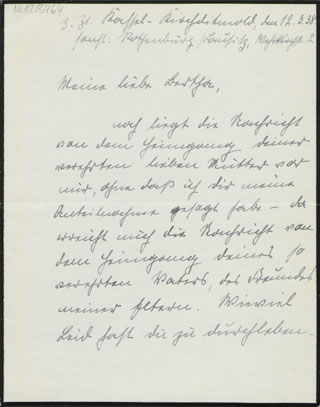 z. Zt. Kassel-Kirchditmold, den 12.3.38
sonst. Rothenburg Lausitz,
Meine liebe Bertha,
noch liegt die Nachricht
von dem Heimgang deiner
verehrten lieben Mutter vor
mir, ohne daß ich dir meine
Anteilnahme gesagt habe – da
erreicht mich die Nachricht von
dem Heimgang deines so
verehrten Vaters, des Freundes
meiner Eltern. Wieviel
Leid hast du zu durchleben